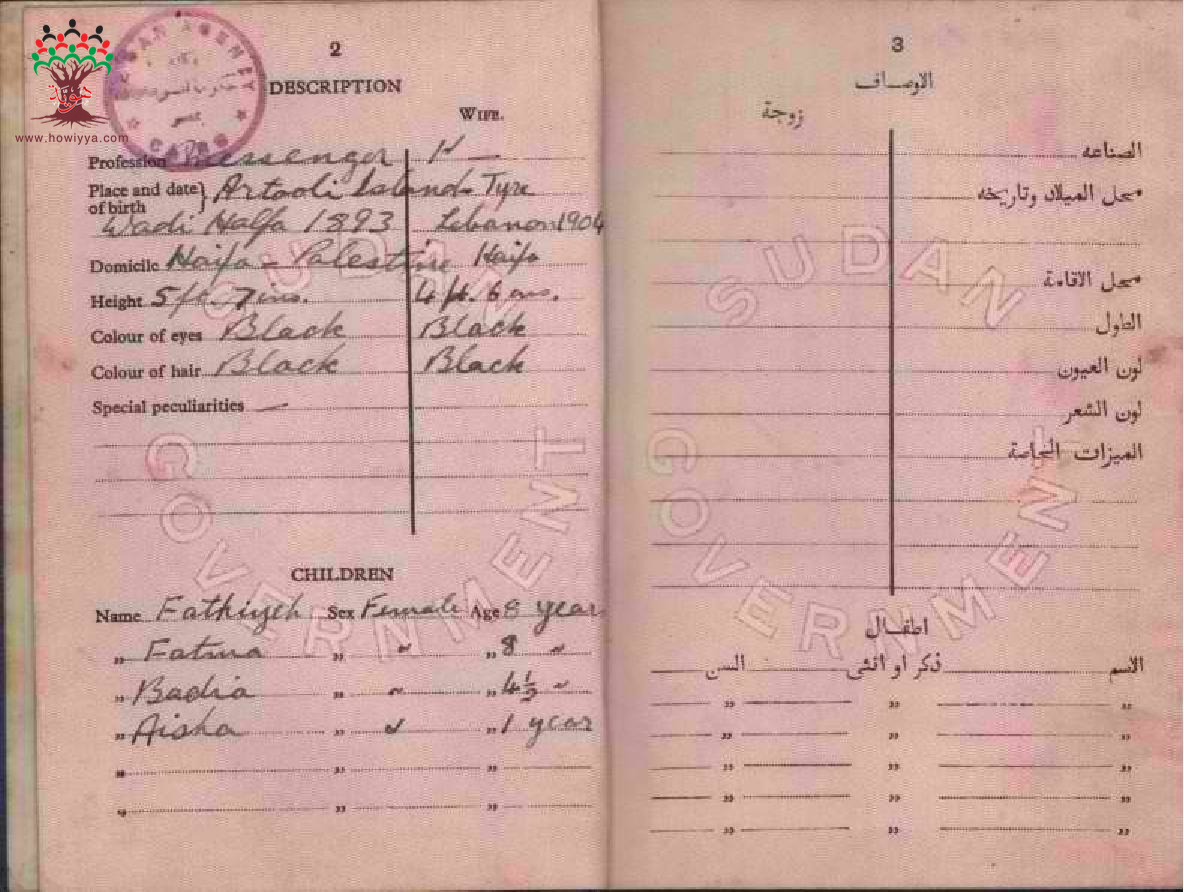 www.howiyya.com
SUDAN AGENCY
CAIRO
2
DESCRIPTION
WIFE.
Profession Messenger
Place and date of birth } Artooli Island Tyre
Wadi Halfa 1893 Lebanon 1904
Domicile Haifa - Palestine Haifa
Height 5 ft. 7 ins. 4 ft. 6 ins.
Colour of eyes Black Black
Colour of hair Black Black
Special peculiarities —
CHILDREN
Name Fathiyeh Sex Female Age 8 years
" Fatma " " " 8 "
" Badia " " " 4½ "
" Aisha " " " 1 year
" " "
" " "
SUDAN GOVERNMENT
3
الاوصاف
زوجة
الصناعه
محل الميلاد وتاريخه
محل الاقامة
الطول
لون العيون
لون الشعر
الميزات الخاصة
اطفال
الاسم ذكر او انثى السن
" " "
" " "
" " "
" " "
" " "
SUDAN GOVERNMENT